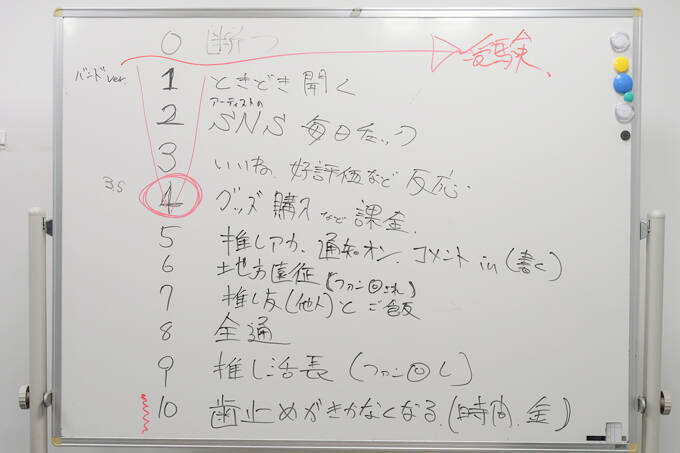 0 断つ 受験、
バンドver. 1 ときどき 聞く
アーティストの
2 SNS 毎日チェック
3 いいね、好評価など 反応
3.5 4 グッズ 購入 など 課金、
5 推しアカ、通知オン、コメント in (書く)
6 地方遠征 (ファン回され)
7 推し友(他人)と ご飯
8 全通
9 推し活長 (ファン回し)
10 歯止めがきかなくなる、(時間、金)